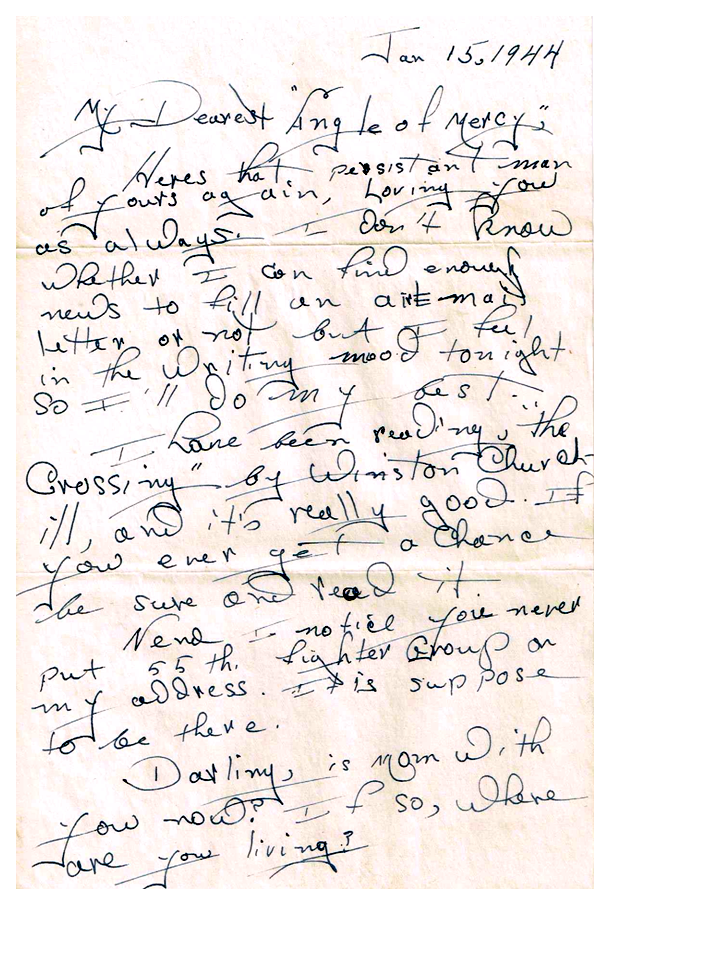 Jan 15, 1944
My Dearest "Angle of Mercy",
Heres that persistant man
of yours again, Loving you
as always. I don't know
whether I can find enough
news to fill an air-mail
letter or not but I feel
in the writing mood tonight
so I'll do my best.
I have been reading, "the
Crossing" by Winston Church-
ill, and it's really good. If
you ever get a chance
be sure and read it.
Nena I notice you never
put 55th. fighter Group on
my address. It is suppose
to be there.
Darling, is Mom with
you now? If so, where
are you living?